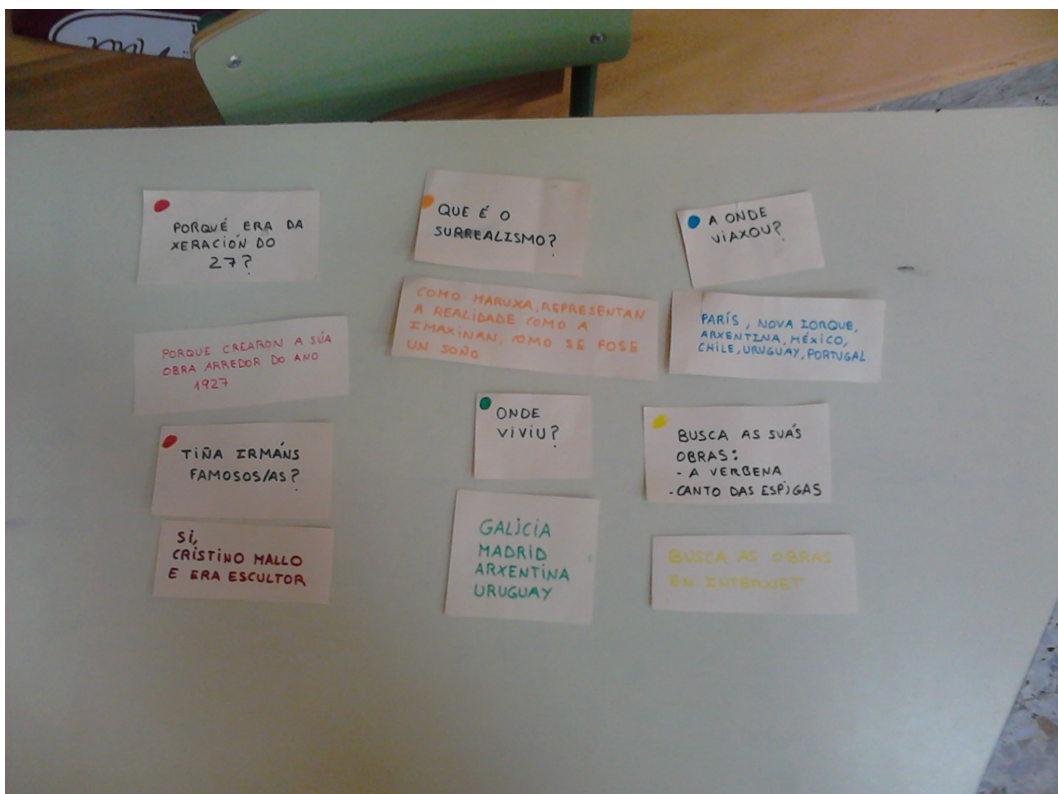 PORQUÉ ERA DA
XERACIÓN DO
27?
PORQUE CREARON A SÚA
OBRA ARREDOR DO ANO
1927
TIÑA IRMÁNS
FAMOSOS/AS?
SI,
CRISTINO MALLO
E ERA ESCULTOR
QUE É O
SURREALISMO?
COMO MARUXA, REPRESENTAN
A REALIDADE COMO A
IMAXINAN, COMO SE FOSE
UN SOÑO
ONDE
VIVIU?
GALICIA
MADRID
ARXENTINA
URUGUAY
A ONDE
VIAXOU?
PARÍS, NOVA IORQUE,
ARXENTINA, MÉXICO,
CHILE, URUGUAY, PORTUGAL
BUSCA AS SUÁS
OBRAS:
- A VERBENA
- CANTO DAS ESPIGAS
BUSCA AS OBRAS
EN INTERNET